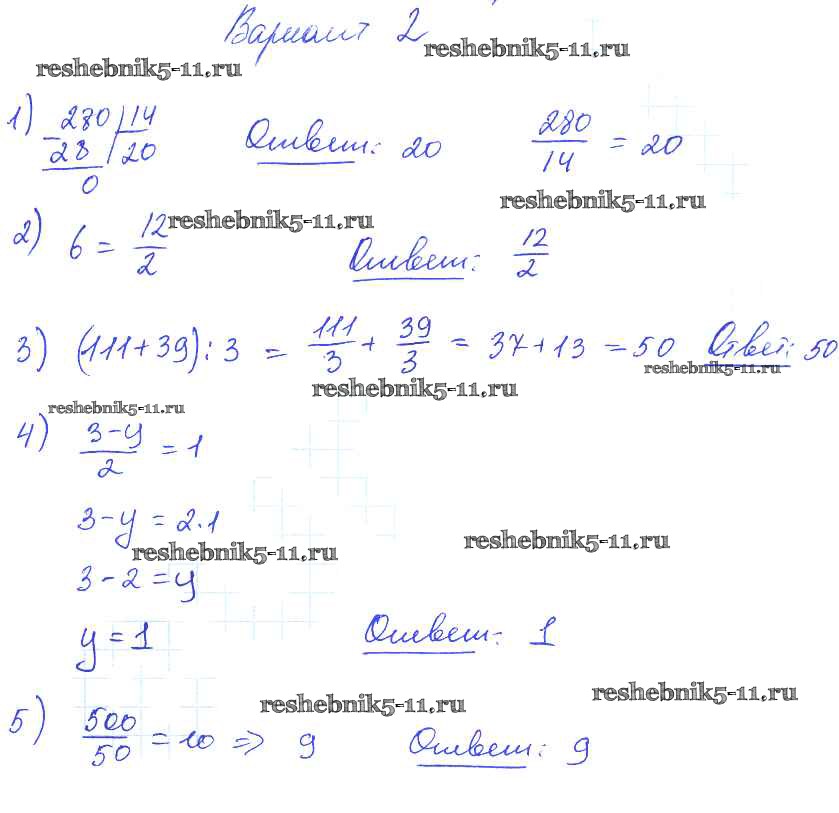 Вариант 2
reshebnik5-11.ru
reshebnik5-11.ru
1) 280 | 14
- 28 | 20
0
Ответ: 20
280/14 = 20
reshebnik5-11.ru
reshebnik5-11.ru
2) 6 = 12/2
Ответ: 12/2
3) (111+39):3 = 111/3 + 39/3 = 37+13 = 50 Ответ: 50
reshebnik5-11.ru
reshebnik5-11.ru
reshebnik5-11.ru
4) 3-y/2 = 1
3-y = 2·1
reshebnik5-11.ru
reshebnik5-11.ru
3-2=y
y=1 Ответ: 1
reshebnik5-11.ru
reshebnik5-11.ru
5) 500/50 = 10 => 9 Ответ: 9